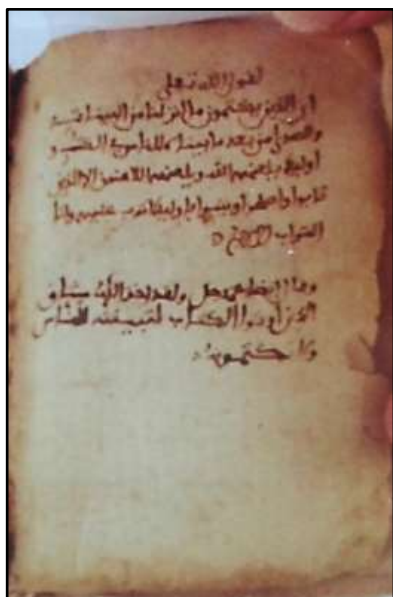 لقول الله تعلى
ان الذين يكتمون ما انزلنا من البينات
والهدى من بعد ما بيناه للناس في الكتب
اوليك يلعنهم الله ويلعنهم اللاعنون الا الذين
تابوا واصلحوا وبينوا فاوليك اتوب عليهم وانا
التواب الرحيم
وقال ايضا عز وجل واذ اخذ الله ميثاق
الذين أوتوا الكتاب لتبيننه للناس
ولا تكتمونه